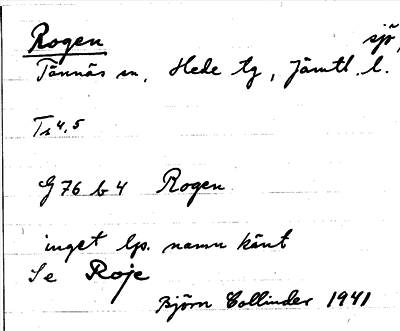 Rogen sjö,
Tännäs sn, Hede tg, Jämtl. l.
Ts 4,5
G 76 b 4 Rogen
inget lp. namn känt
Se Roje
Björn Collinder 1941